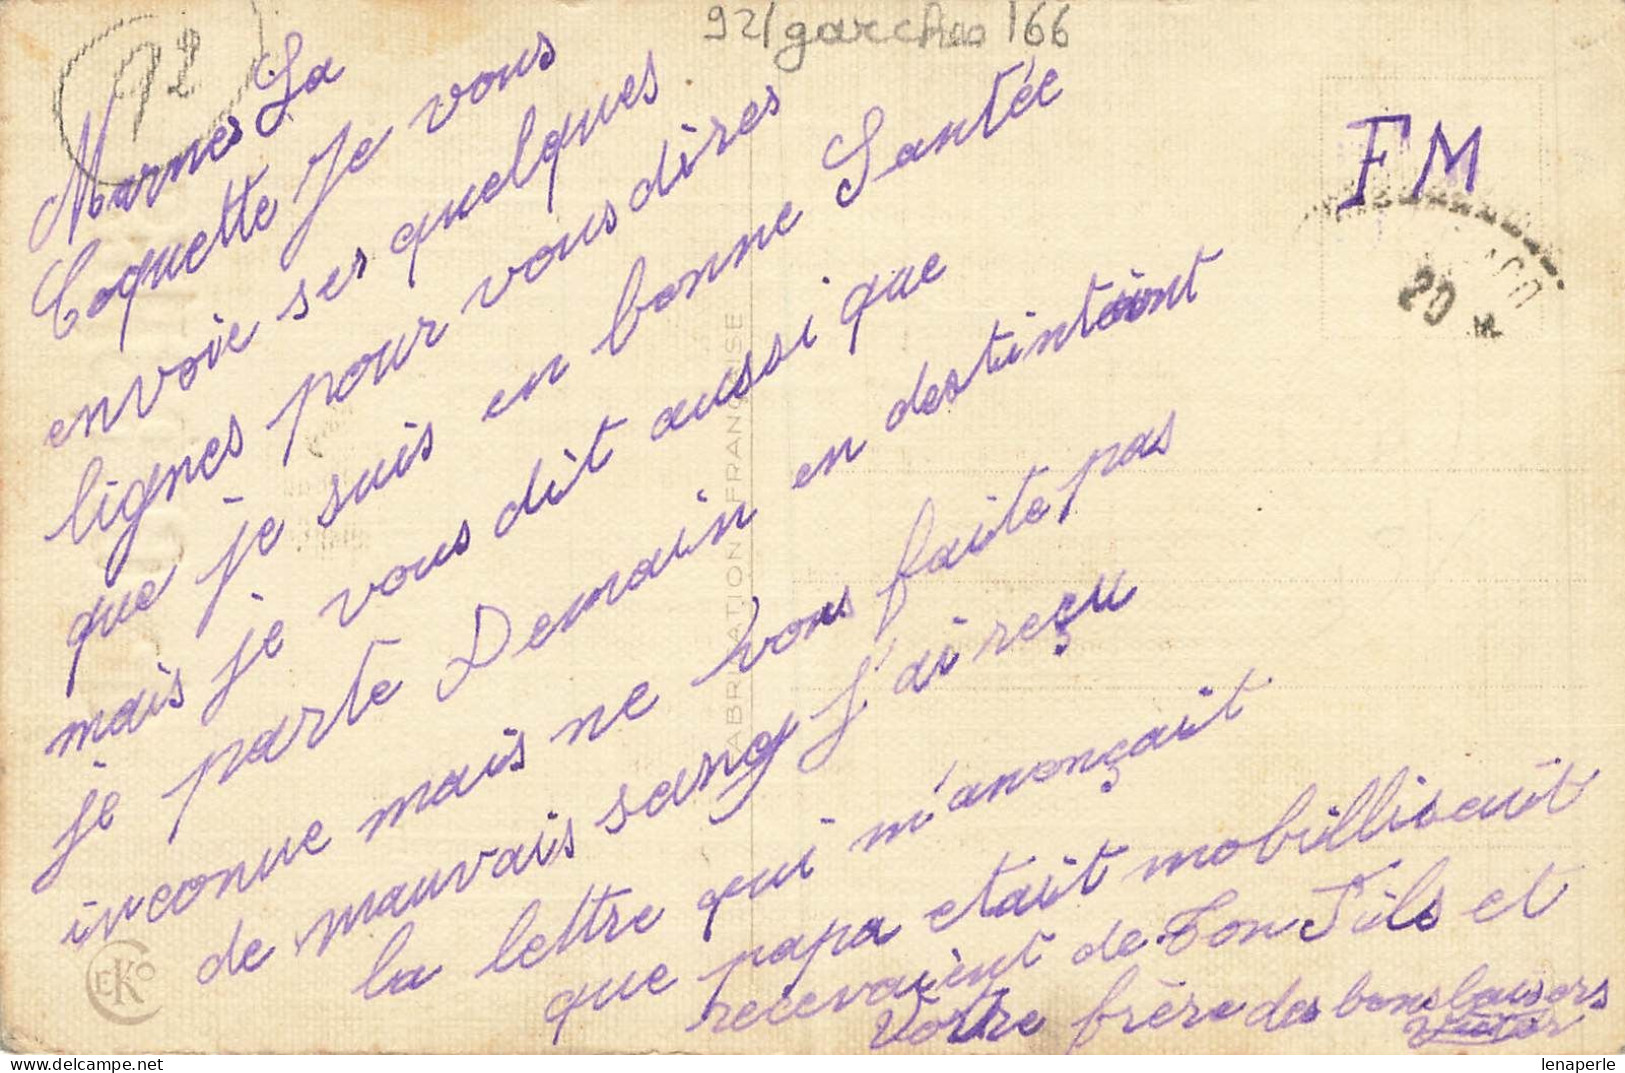 92/garches 166
12
FM
20 *
Marnes La
Coquette Je vous
envoie ses quelques
lignes pour vous dires
que je suis en bonne Santée
mais je vous dit aussi que
je parte Demain en destintoint
inconue mais ne vous faite pas
de mauvais sang J'ai reçu
la lettre qui m'anonçait
que papa etait mobillisait
recevaient de Ton Fils et
Votre frère des bons baisers
Victor
FABRICATION FRANÇAISE
EKO
lenaperle